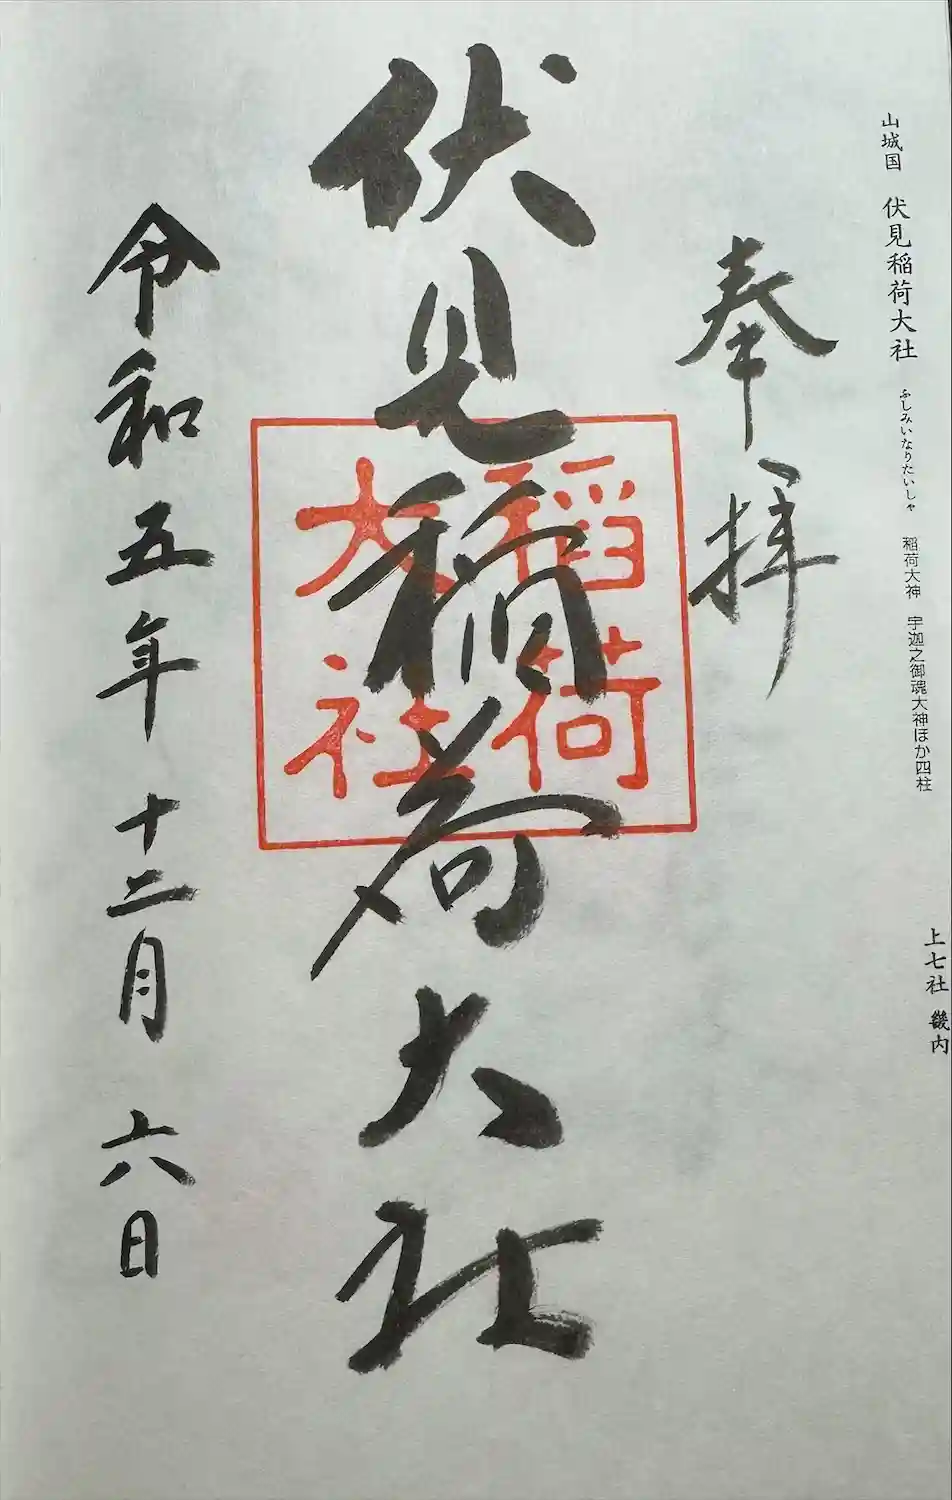 山城国 伏見稲荷大社 ふしみいなりたいしゃ 稲荷大神 宇迦之御魂大神ほか四柱 上七社 畿内
奉拝
伏見稲荷大社
稲荷
大社
令和五年十二月六日